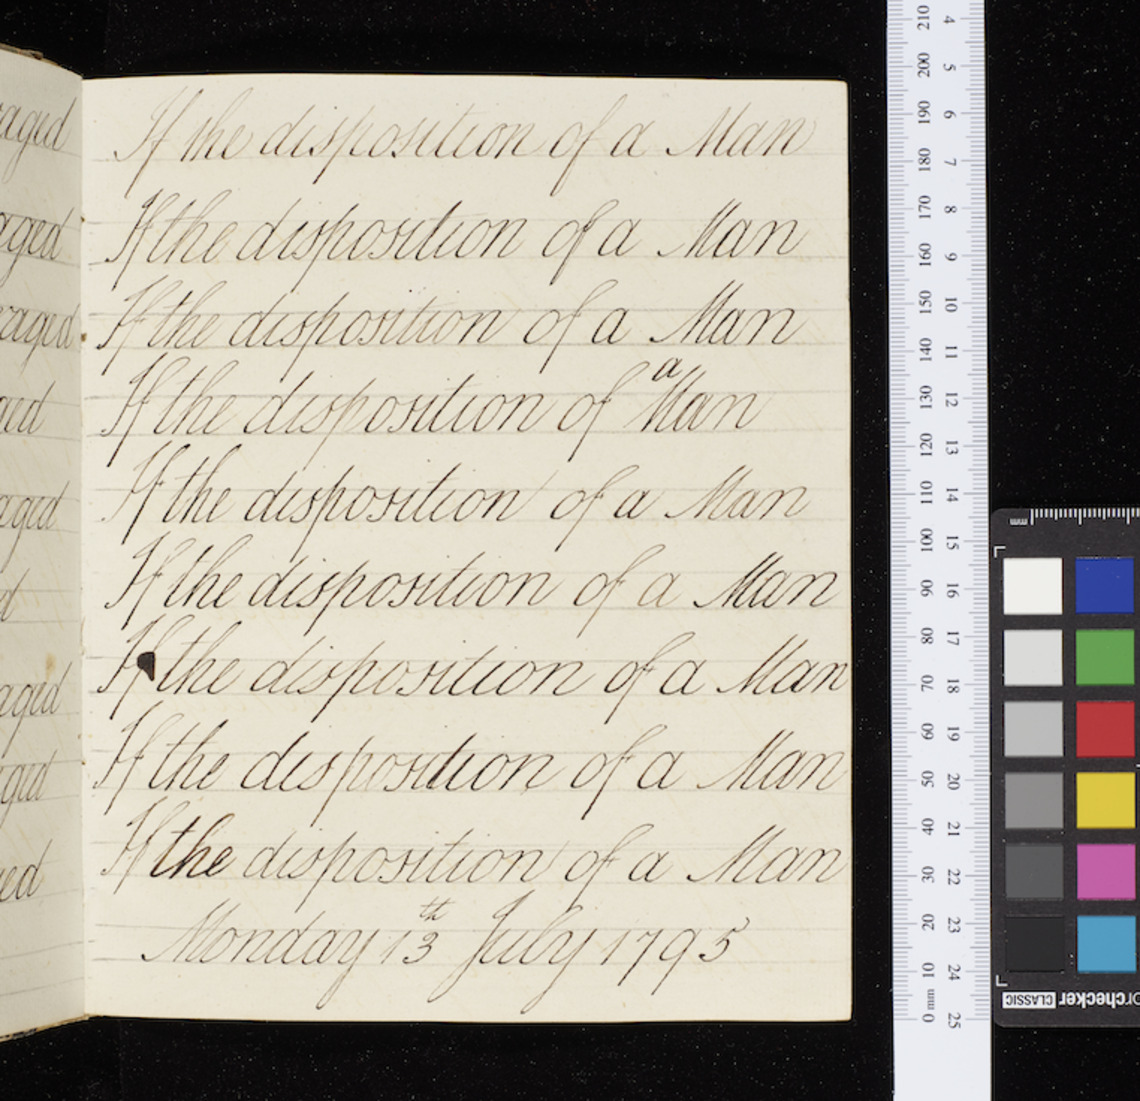 If the disposition of a Man
If the disposition of a Man
If the disposition of a Man
If the disposition of a Man
If the disposition of a Man
If the disposition of a Man
If the disposition of a Man
If the disposition of a Man
If the disposition of a Man
Monday 13th July 1795
aged
aged
aged
aged
aged
210 200 190 180 170 160 150 140 130 120 110 100 90 80 70 60 50 40 30 20 10 0 mm
4 5 6 7 8 9 10 11 12 13 14 15 16 17 18 19 20 21 22 23 24 25
mm
checker CLASSIC